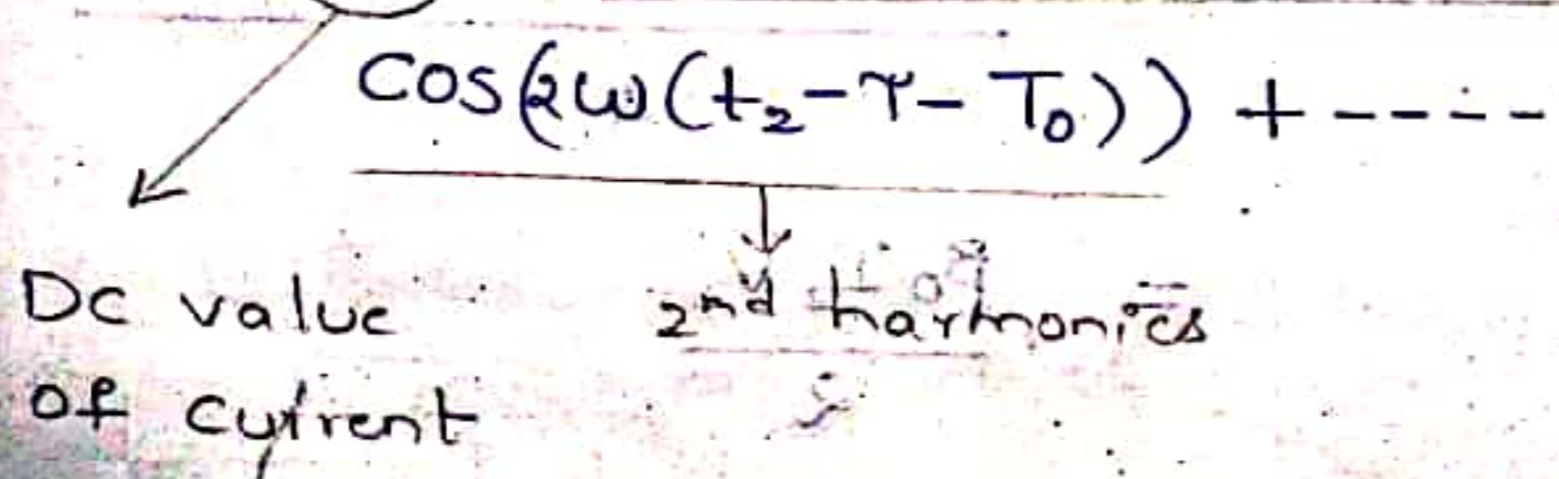 Cos(2ω(t₂-τ-T₀)) + -----
DC value
of current
2nd harmonics